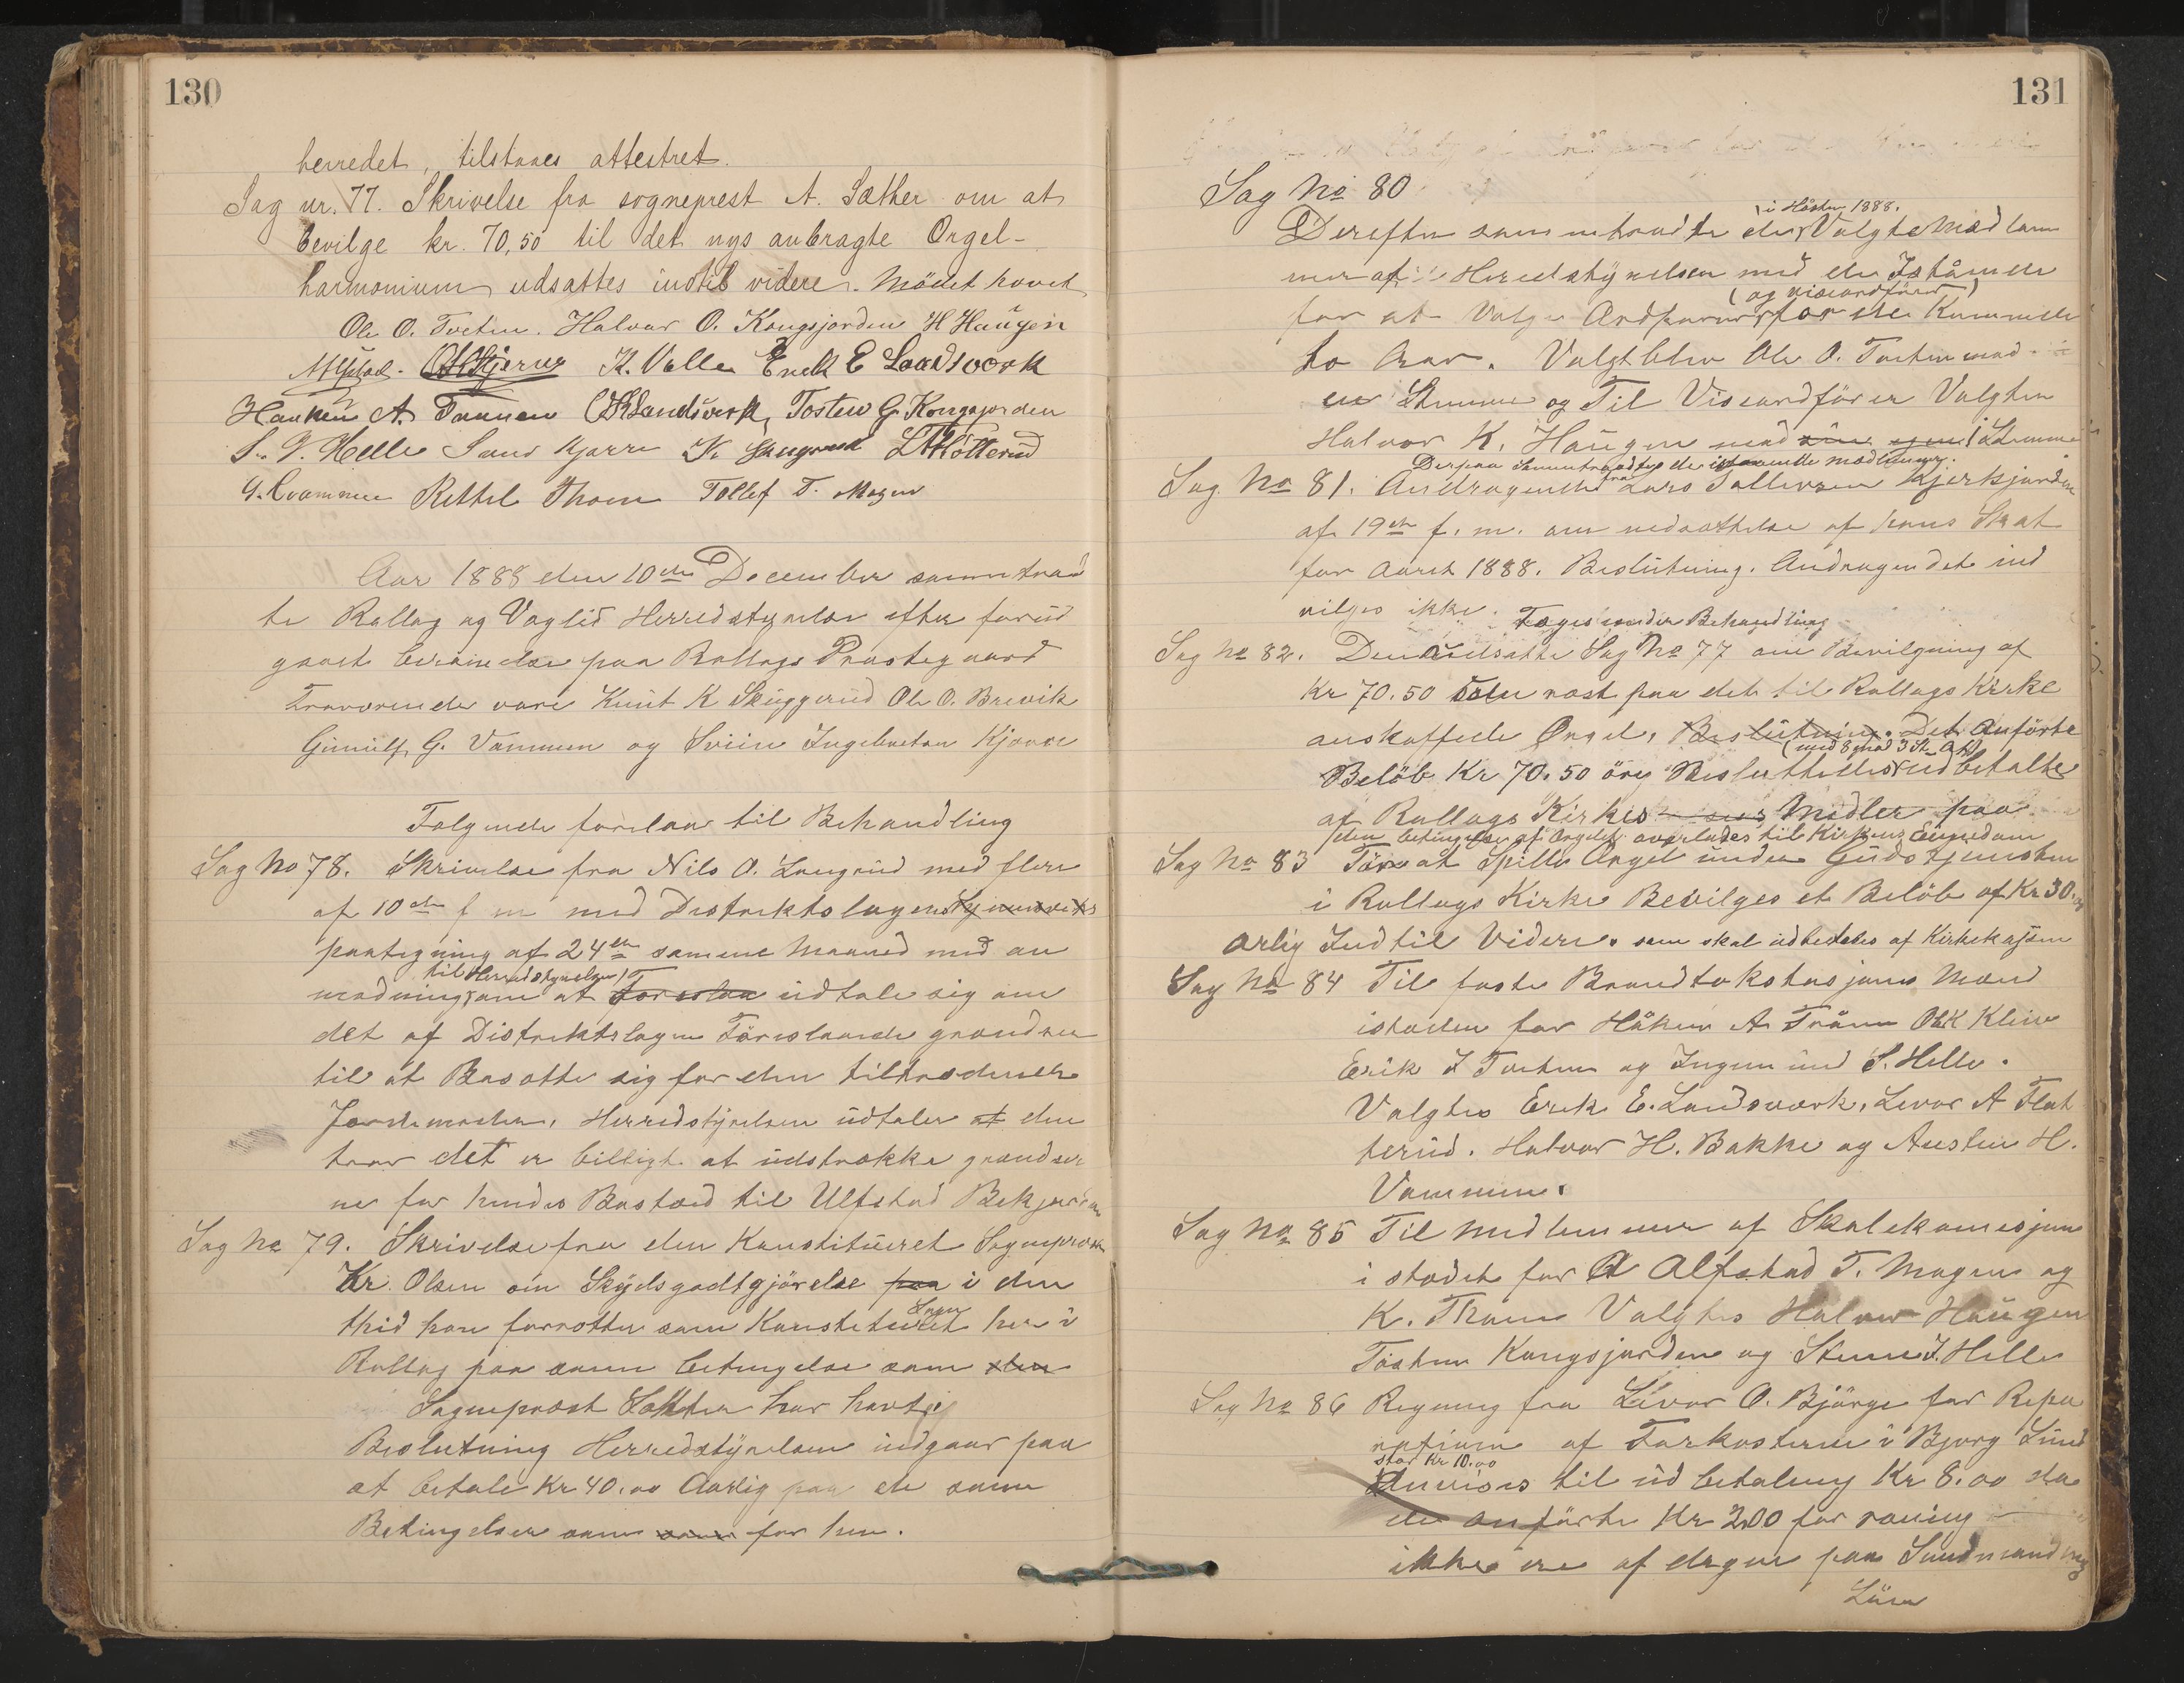 130
herredet, tilstaaes attestret.
Sag nr. 77. Skrivelse fra sogneprest A. Sæther om at
bevilge kr. 70,50 til det nys anbragte Orgel-
harmonium udsattes indtil videre. Mödet hævet
Ole O. Tveten. Halvor O. Kongsjorden H Haugen
K. Valle Erik E Landsverk
Haaken A. Traaen Landsverk, Tosten G. Kongsjorden
S. J. Helle Kjerre K.
G. Kvammen Kettil Thoen Tollef T. Mogen
Aar 1888 den 10de December samntraad
te Rollag og Veglid Herredstyrelse efter forud
gaaet berammelse paa Rollags Prastegaard
Fraværende vare Knut K Skuggerud Ole O. Brevik
Gunulf G. Vammen og Sviin Ingebretsn Kjerre
Følgende forelaa til Behandling
Sag No 78. Skrivelse fra Nils O. Langrud med flere
af 10de f m med Destriktslagens
paategning af 24de samme Maaned med an
til Herredstyrelsen
modning om at Foreslaa udtale sig om
det af Distriktslagen Föreslaaede grændser
til at Basætte sig for den tiltrædende
Jordemoder, Herredstyrelsen udtaler at den
tror det er billigt at udstrække grændser
ne for hendes Bosted til Ulfstad
Sag No 79. Skrivelse fra den Konstitueret Sogneprest
Kr. Olsen om Skydsgodtgjörelse paa i den
Sogn
thid han forretter som Konstitueret her i
Rollag paa samme betingelse som den
Sogneprest Sæther har havt
Beslutning Herredstyrelsen indgaar paa
at betale Kr 40.00 Aarlig paa de samme
Betingelser som for hen.
131
Sag No 80
i Hösten 1888.
Derefter sammentraadte de Valgte Medlem
mer af Heredstyrelsen med de
(og viseordförer)
for at Valge Ordförer for de Kommende
to Aar. Valgt blev Ole O. Tveten med
en Stemme og Til Viseordförer Valgtes
Halvor K. Haugen med sin egen 1 Stemme
Derpaa Sammentraadte de medlemmer.
Sag No 81. Andragende fra Lars Tollevsen Kjerkjorden
af 19de f. m. om nedsættelse af hans Skat
for Aaret 1888. Beslutning. Andragendet ind
vilges ikke.
Toges under Behandling
Sag No 82. Den udsatte Sag No 77 om Bevilgning af
Kr 70.50 paa det til Rollags Kirke
anskaffede Orgel, Beslutning. Det Anförte
(med 8 mod 3 St.)
Belöb Kr 70.50 öre Besluttedes udbetalte
af Rollags Kirkes Midler paa
den betingelse at Orgelet overlades til Kirkens Eiendom
Sag No 83 För at Spille Orgel under Gudstjenesten
i Rollags Kirke Bevilges et Belöb af Kr 30.00
arlig Indtil Videre. som skal udbetales af Kirkekassen
Sag No 84 Til faste Brandtakstasjons Mænd
istæden for Håken A Tråen Ole K Kleiv
Erik J Tveten og Ingemund S. Helle.
Valgtes Erik E. Landsverk, Levor A Flat
terud. Halvor H. Bakke og Austen H.
Vammen.
Sag No 85 Til Medlemmer af Skolekomesjon
i stædet for A Alfstad T. Mogen og
K. Thoen Valgtes Halvor Haugen
Tosten Kongsjorden og Steen J. Helle
Sag No 86 Regning fra Levor O. Björge for Repa
ration af Farkosterne i Bjorg Sund
stor Kr 10.00
Anvises til udbetaling Kr 8.00 da
de anförte Kr 2.00 for roning
ikke ere af drgne paa Sundmandens
Lön